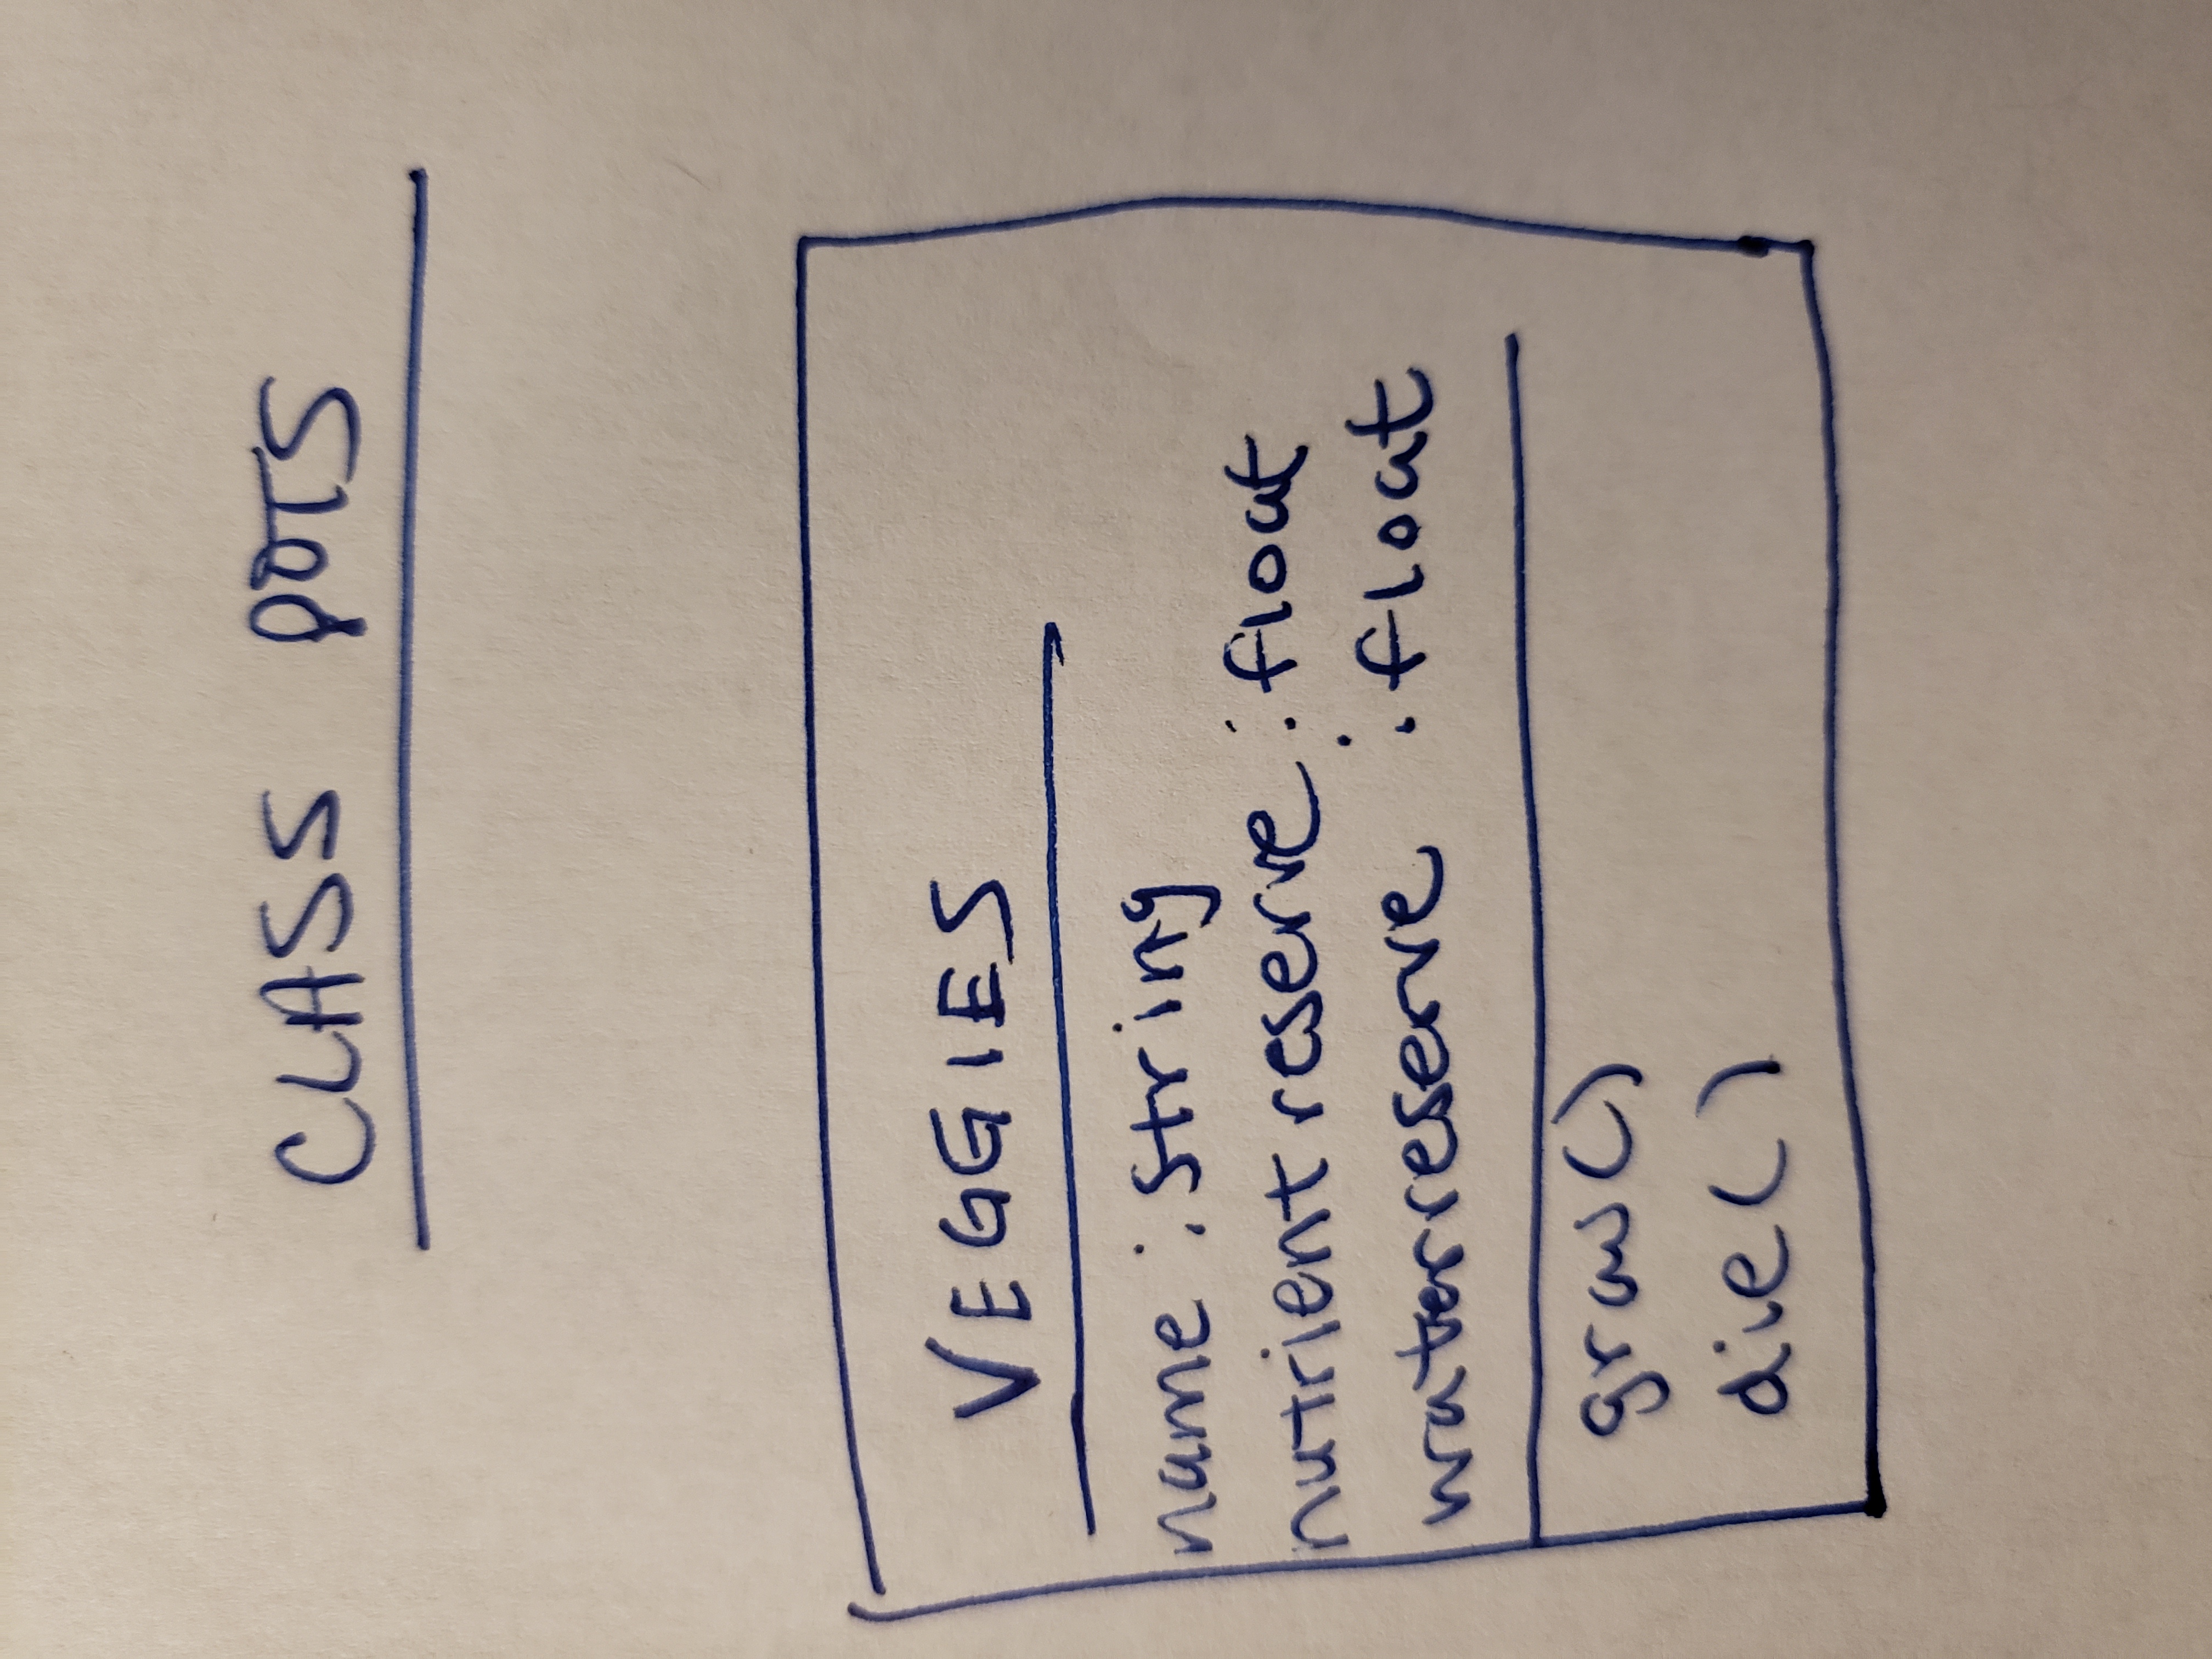 CLASS POTS
VEGGIES
name : string
nutrient reserve : float
waterreserve : float
grow()
die()